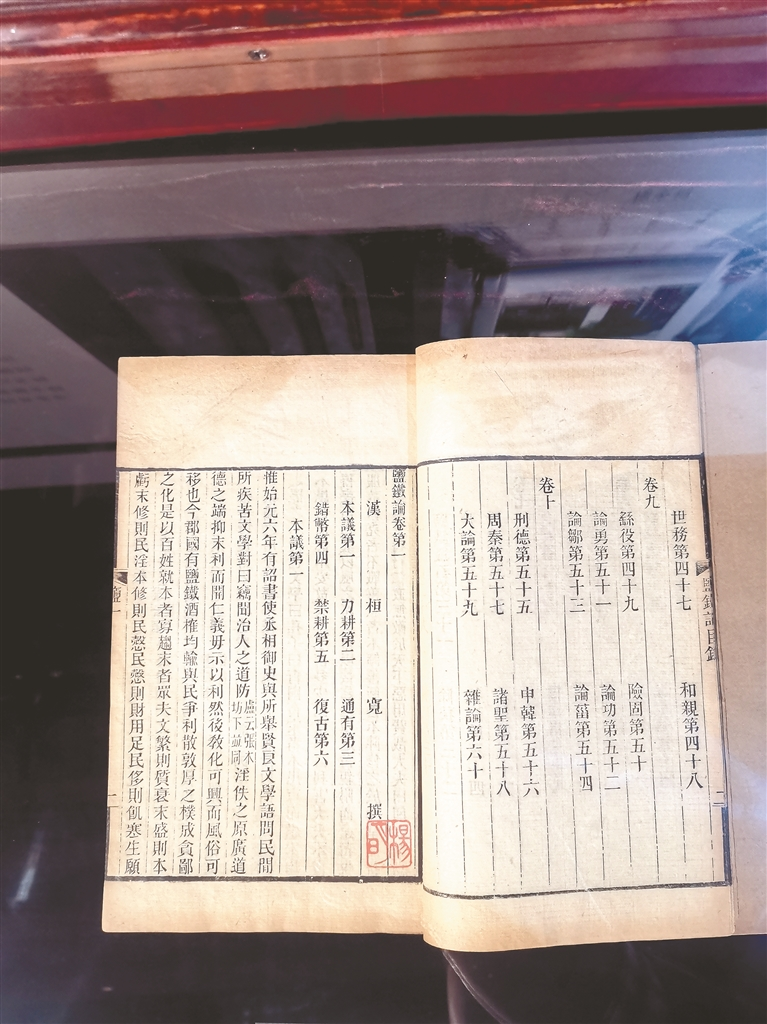 鹽鐵論目錄
二
世務第四十七 和親第四十八
卷九
繇役第四十九 險固第五十
論勇第五十一 論功第五十二
論鄒第五十三 論菑第五十四
卷十
刑德第五十五 申韓第五十六
周秦第五十七 諸聖第五十八
大論第五十九 雜論第六十四
鹽鐵論卷第一
漢 桓 寬 撰
楊
本議第一 力耕第二 通有第三
錯幣第四 禁耕第五 復古第六
本議第一
惟始元六年有詔書使丞相御史與所舉賢良文學語問民間
所疾苦文學對曰竊聞治人之道防盧云張本坊下並同淫佚之原廣道
德之端抑末利而開仁義毋示以利然後敎化可興而風俗可
移也今郡國有鹽鐵酒榷均輸與民爭利散敦厚之樸成貪鄙
之化是以百姓就本者寡趨末者眾夫文繁則質衰末盛則本
虧末修則民淫本修則民愨民愨則財用足民侈則飢寒生願
鹽一
一